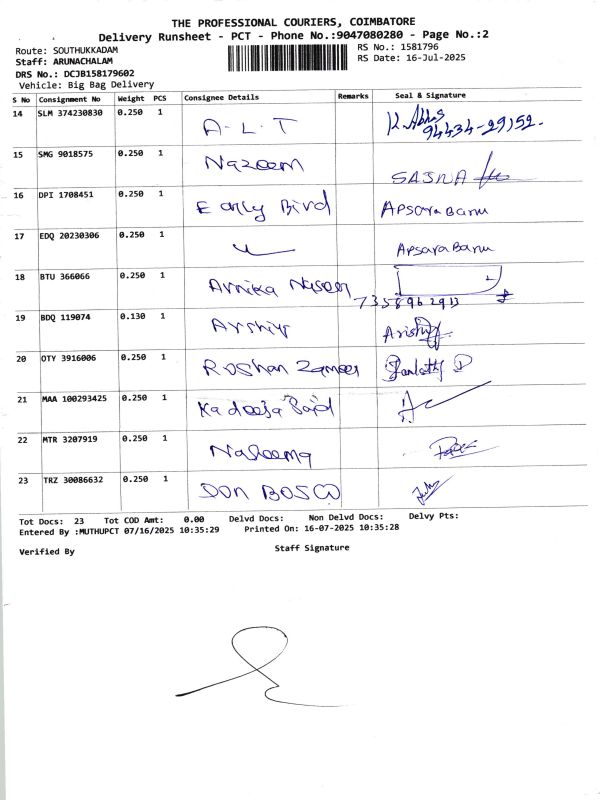 THE PROFESSIONAL COURIERS, COIMBATORE
Delivery Runsheet - PCT - Phone No.:9047080280 - Page No.:2
Route: SOUTHUKKADAM
RS No.: 1581796
Staff: ARUNACHALAM
RS Date: 16-Jul-2025
DRS No.: DCJB158179602
Vehicle: Big Bag Delivery
S No Consignment No Weight PCS Consignee Details Remarks Seal & Signature
14 SLM 374230830 0.250 1 A-L-T K. Abhas
94434-29152.
15 SMG 9018575 0.250 1 Nazeem SAJNA
16 DPI 1708451 0.250 1 Early Bird Apsara Banu
17 EDQ 20230306 0.250 1 Apsara Banu
18 BTU 366066 0.250 1 Arnika Naseem
7358962913
19 BDQ 119074 0.130 1
20 OTY 3916006 0.250 1 Roshan Zameer
21 MAA 100293425 0.250 1 Kadeeja Said
22 MTR 3207919 0.250 1 Naseema
23 TRZ 30086632 0.250 1 DON BOSCO
Tot Docs: 23 Tot COD Amt: 0.00 Delvd Docs: Non Delvd Docs: Delvy Pts:
Entered By :MUTHUPCT 07/16/2025 10:35:29 Printed On: 16-07-2025 10:35:28
Verified By Staff Signature